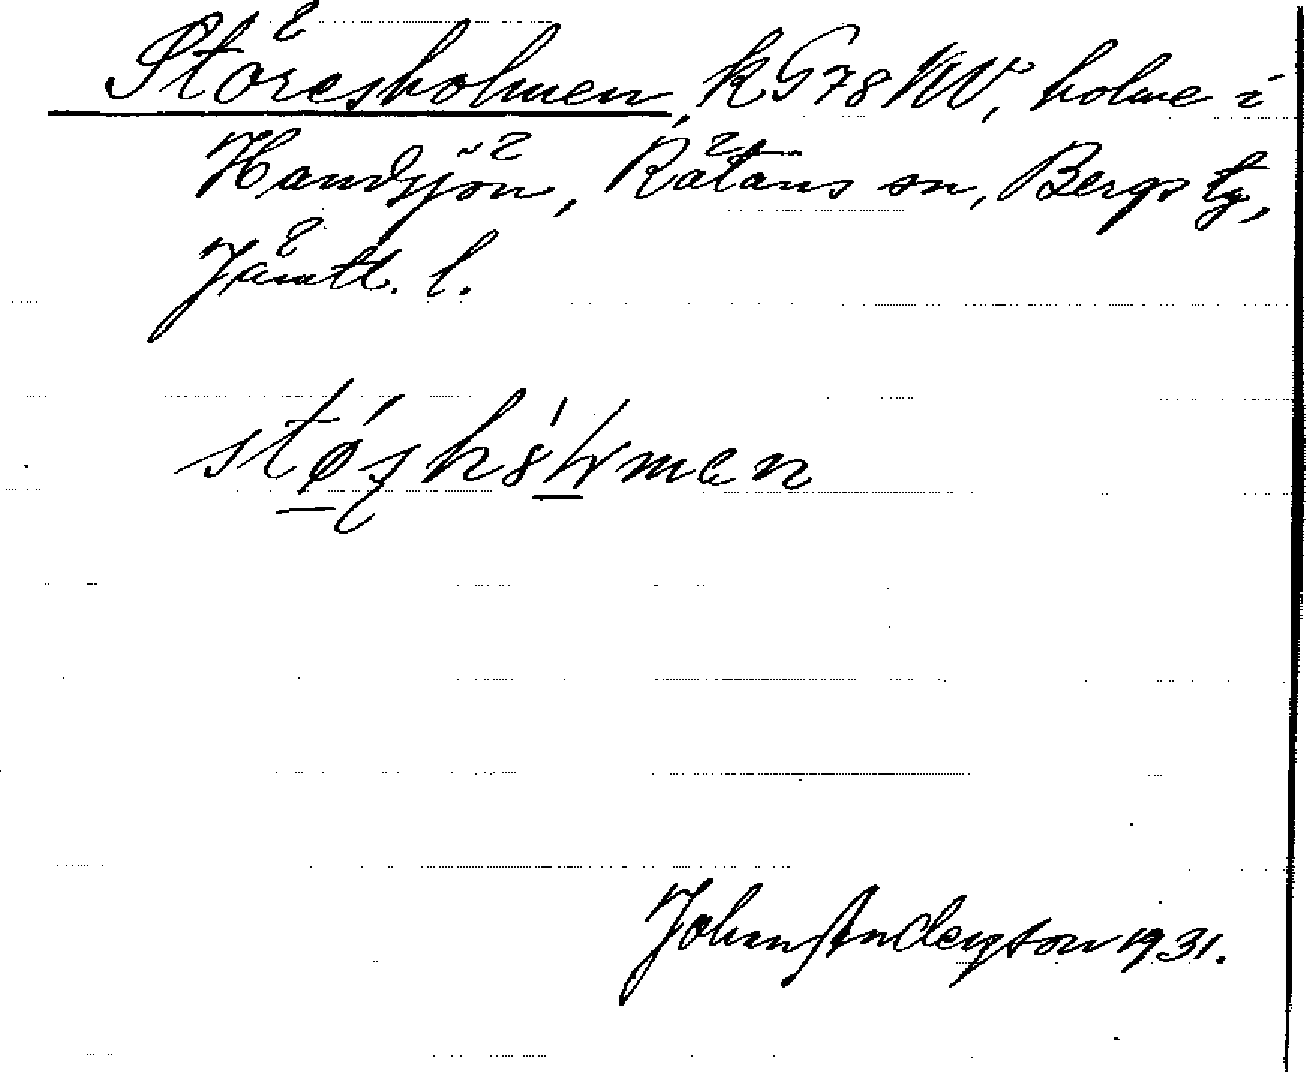 Störesholmen, k G78NV, holme i
Handsjön, Rätans sn, Bergs tg,
Jämtl. l.
John Anderson 1931.